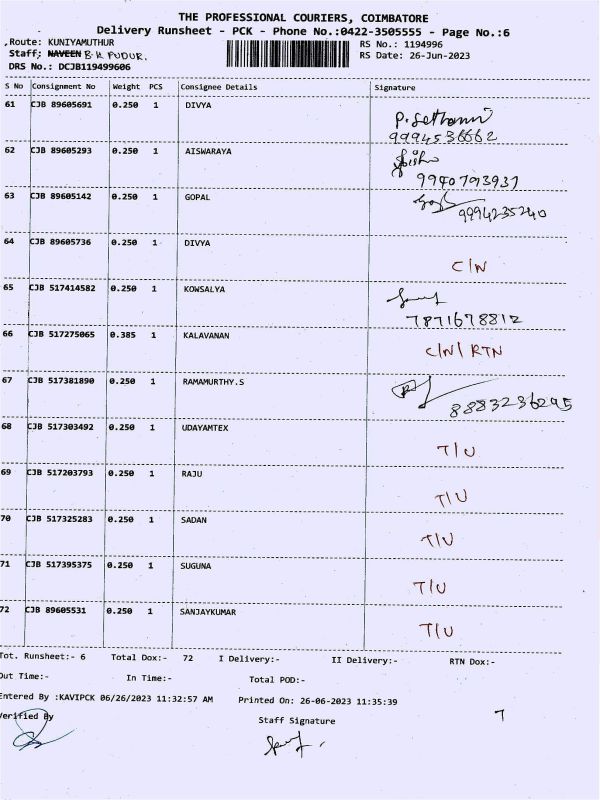 THE PROFESSIONAL COURIERS, COIMBATORE
Delivery Runsheet - PCK - Phone No.:0422-3505555 - Page No.:6
,Route: KUNIYAMUTHUR RS No.: 1194996
Staff; NAVEEN B.K PUDUR. RS Date: 26-Jun-2023
DRS No.: DCJB119499606
S No Consignment No Weight PCS Consignee Details Signature
61 CJB 89605691 0.250 1 DIVYA
9994536662
62 CJB 89605293 0.250 1 AISWARAYA
9940793937
63 CJB 89605142 0.250 1 GOPAL
9994235240
64 CJB 89605736 0.250 1 DIVYA
C/N
65 CJB 517414582 0.250 1 KOWSALYA
7871678812
66 CJB 517275065 0.385 1 KALAVANAN
C/N/ RTN
67 CJB 517381890 0.250 1 RAMAMURTHY.S
8883236295
68 CJB 517303492 0.250 1 UDAYAMTEX
T/U
69 CJB 517203793 0.250 1 RAJU
T/U
70 CJB 517325283 0.250 1 SADAN
T/U
71 CJB 517395375 0.250 1 SUGUNA
T/U
72 CJB 89605531 0.250 1 SANJAYKUMAR
T/U
Tot. Runsheet:- 6 Total Dox:- 72 I Delivery:- II Delivery:- RTN Dox:-
Out Time:- In Time:- Total POD:-
Entered By :KAVIPCK 06/26/2023 11:32:57 AM Printed On: 26-06-2023 11:35:39
Verified By Staff Signature 7